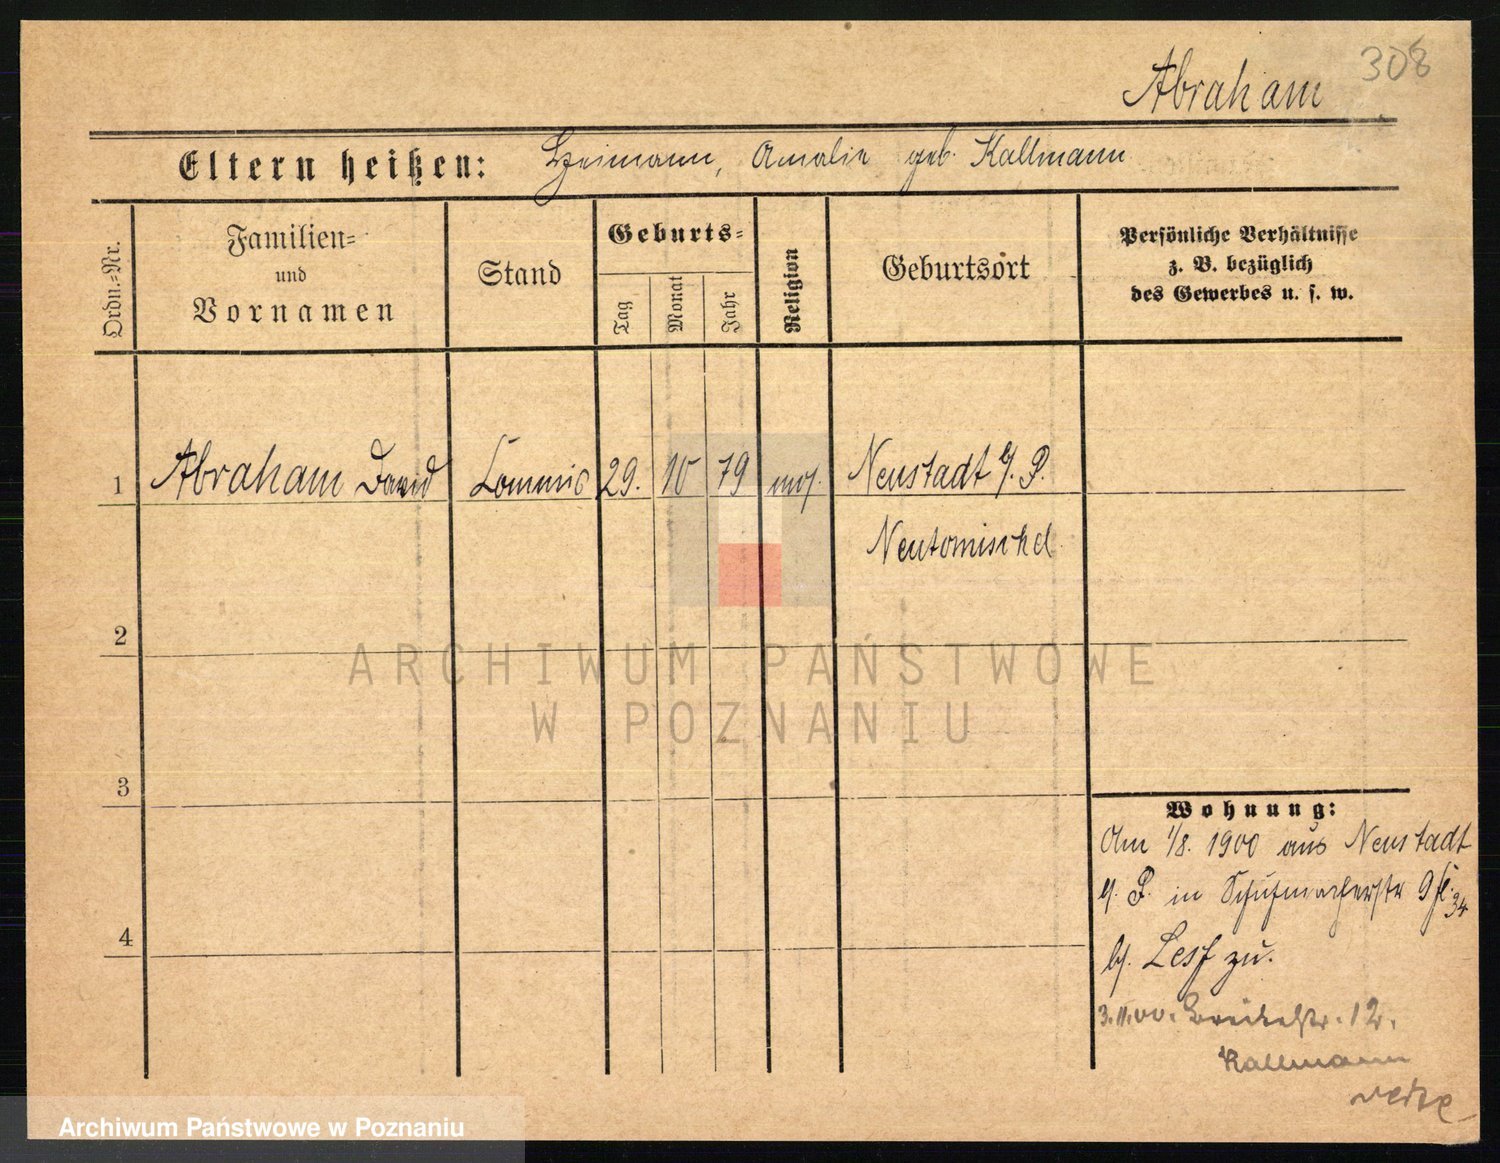 308
Abraham
Eltern heißen: Heimann, Amalie geb. Kallmann
Ordn.-Nr.
Familien-
und
Vornamen
Stand
Geburts-
Tag
Monat
Jahr
Religion
Geburtsort
Persönliche Verhältnisse
z. B. bezüglich
des Gewerbes u. s. w.
1 Abraham David Commis 29. 10 79 mos. Neustadt b/. P.
Neutomischel
2
ARCHIWUM PAŃSTWOWE
W POZNANIU
3
Wohnung:
Am 1/8. 1900 aus Neustadt
b/. P. in Schuhmacherstr 9
b/. Lesf zu.
3.11.00. Breitestr. 12.
Kallmann
4
Archiwum Państwowe w Poznaniu